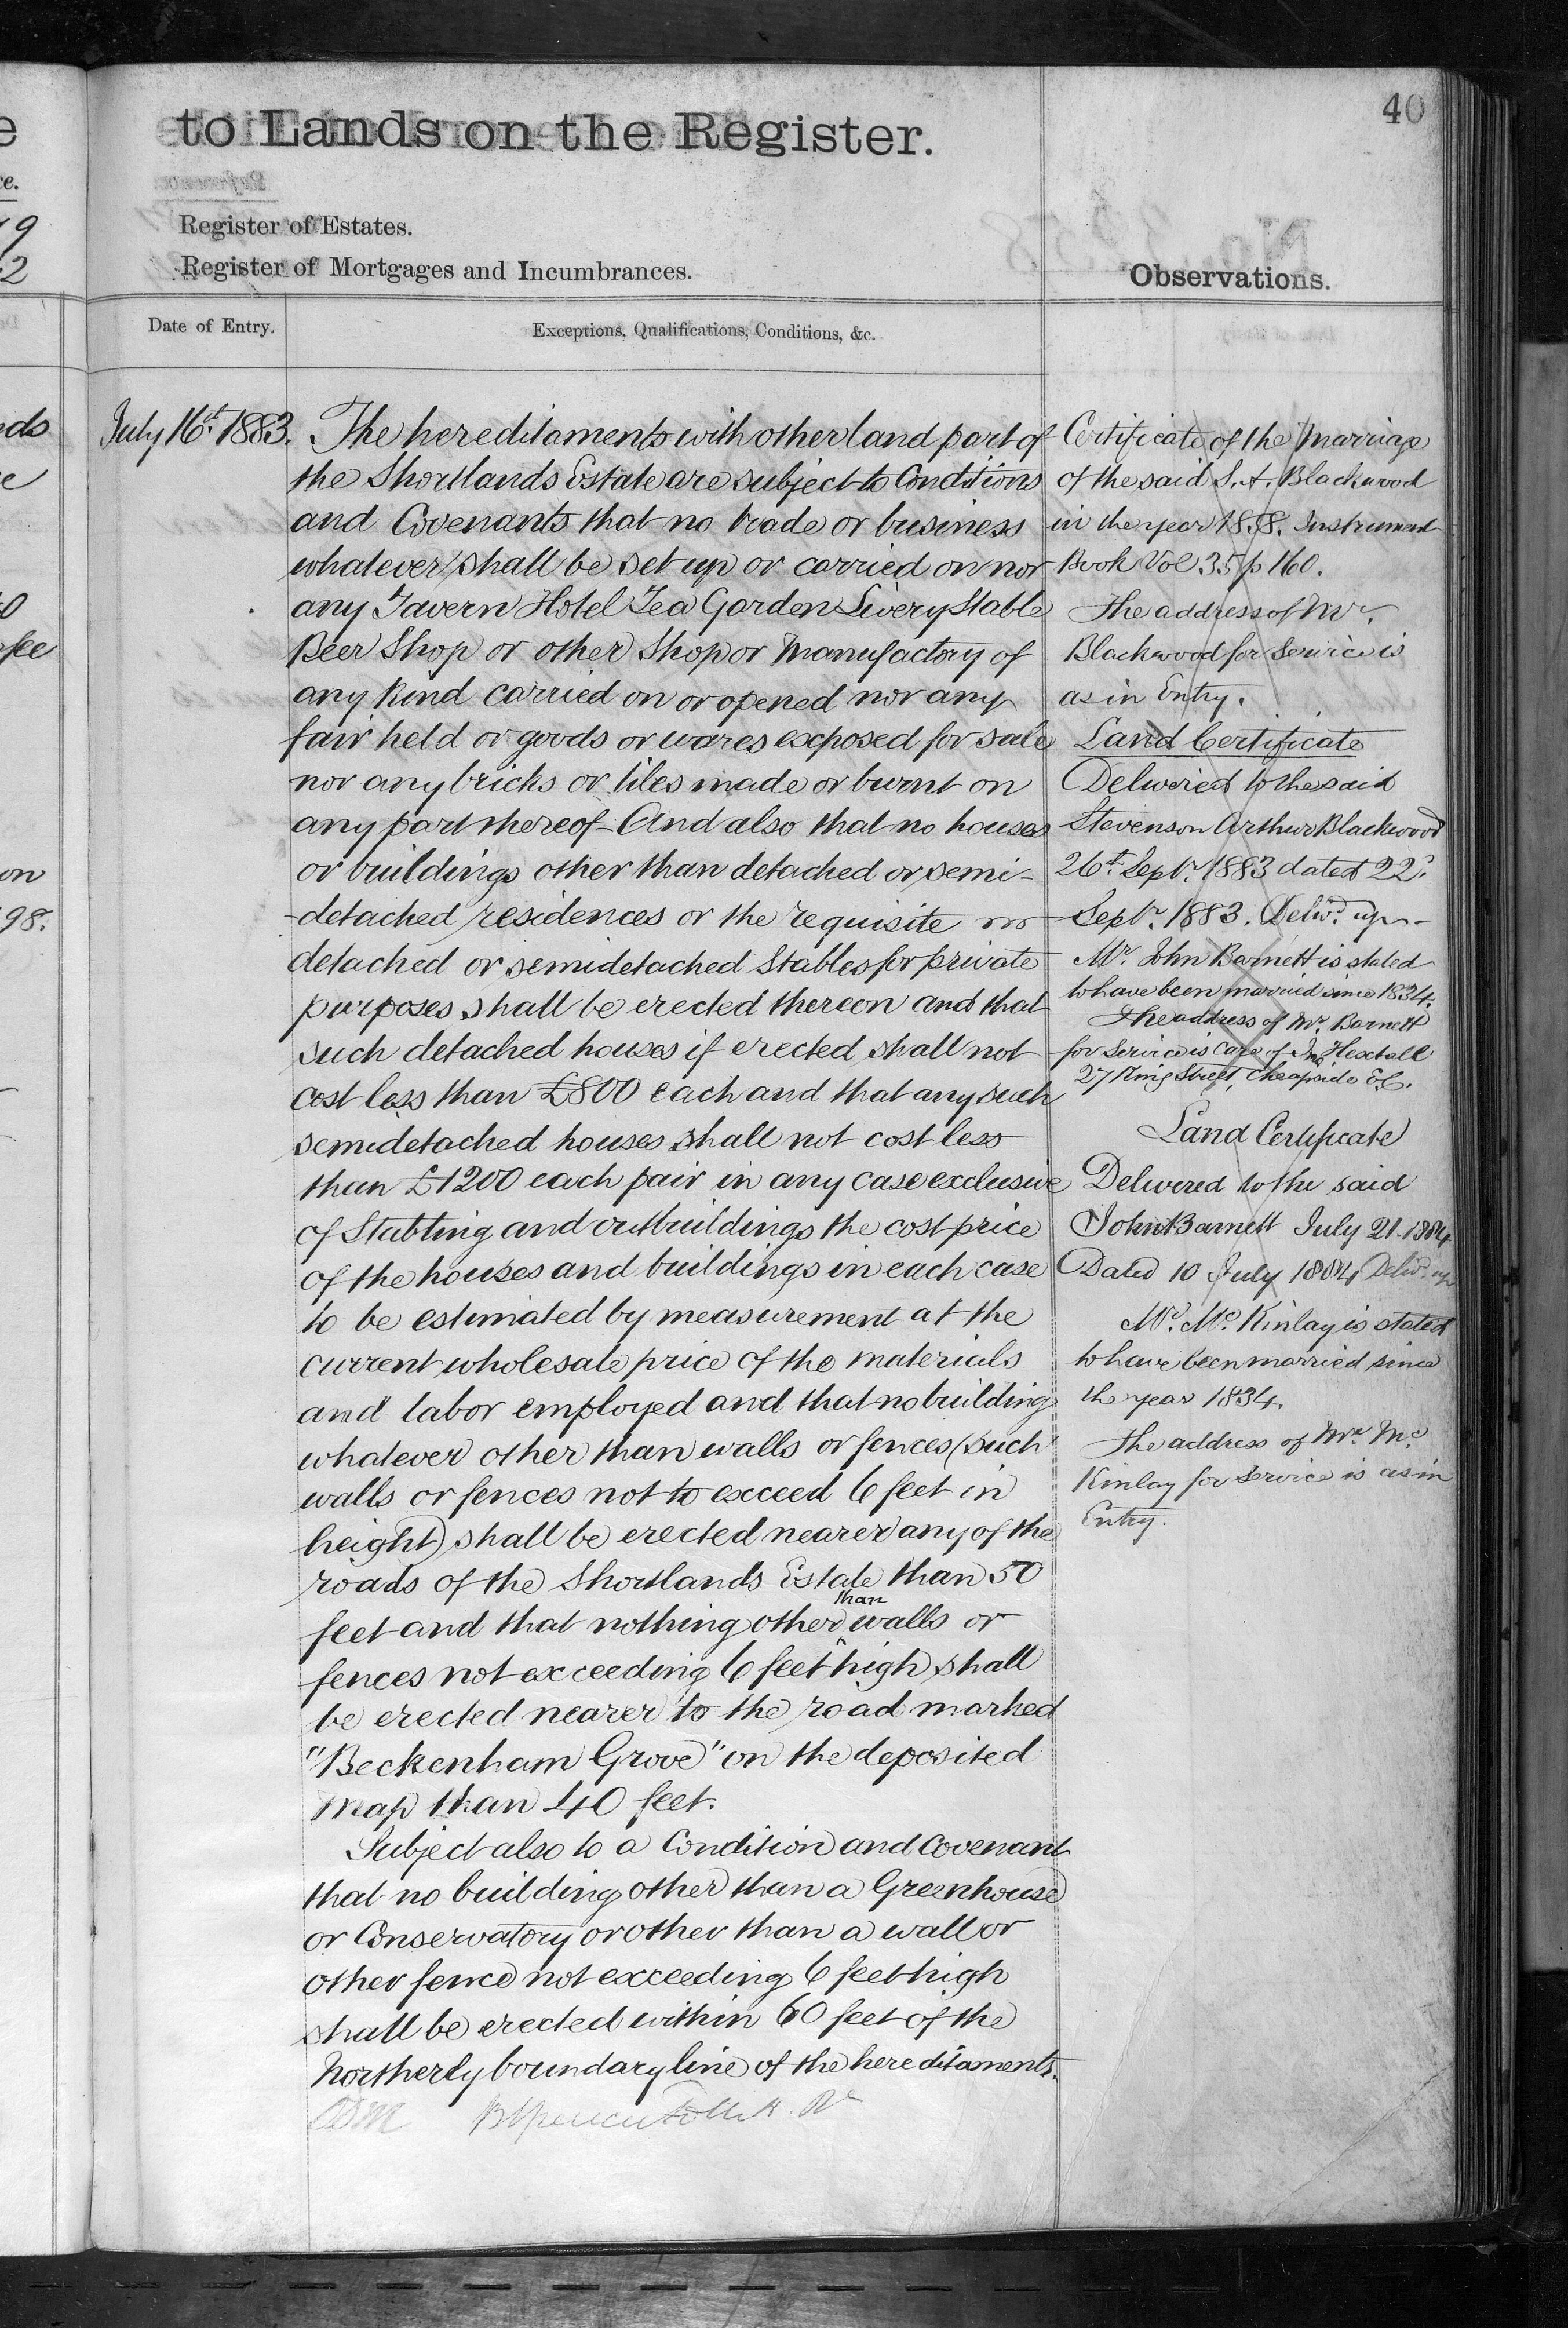 40
to Lands on the Register.
Register of Estates.
Register of Mortgages and Incumbrances.
Observations.
Date of Entry.
Exceptions, Qualifications, Conditions, &c.
July 16th 1883.
The hereditaments with other land part of
the Shortlands Estate are subject to Conditions
and Covenants that no trade or business
whatever shall be set up or carried on nor
any Tavern Hotel Tea Garden Livery Stable
Beer Shop or other Shop or Manufactory of
any kind carried on or opened nor any
fair held or goods or wares exposed for sale
nor any bricks or tiles made or burnt on
any part thereof And also that no houses
or buildings other than detached or semi-
-detached residences or the requisite
detached or semidetached Stables for private
purposes shall be erected thereon and that
such detached houses if erected shall not
cost less than £800 each and that any such
semidetached houses shall not cost less
than £1200 each pair in any case exclusive
of Stabling and outbuildings the cost price
of the houses and buildings in each case
to be estimated by measurement at the
current wholesale price of the materials
and labor employed and that no building
whatever other than walls or fences (such
walls or fences not to exceed 6 feet in
height) shall be erected nearer any of the
roads of the Shortlands Estate than 50
feet and that nothing other than walls or
fences not exceeding 6 feet high shall
be erected nearer to the road marked
"Beckenham Grove" on the deposited
map than 40 feet.
Subject also to a Condition and Covenant
that no building other than a Greenhouse
or Conservatory or other than a wall or
other fence not exceeding 6 feet high
shall be erected within 60 feet of the
Northerly boundary line of the hereditaments.
Certificate of the Marriage
of the said S. A. Blackwood
in the year 1858. Instrument
Book Vol 35 p 160.
The address of Mr.
Blackwood for Service is
as in Entry.
Land Certificate
Delivered to the said
Stevenson Arthur Blackwood
26th Septr. 1883 dated 22d
Septr. 1883. Delivd. up
Mr. John Barnett is stated
to have been married since 1834.
The address of Mr. Barnett
for Service is Care of Jno. Hextall
27 King Street, Cheapside E.C.
Land Certificate
Delivered to the said
John Barnett July 21. 1884
Dated 10 July 1884 Delivd. up
Mr. Mc. Kinlay is stated
to have been married since
the year 1834.
The address of Mr. Mc.
Kinlay for Service is as in
Entry.